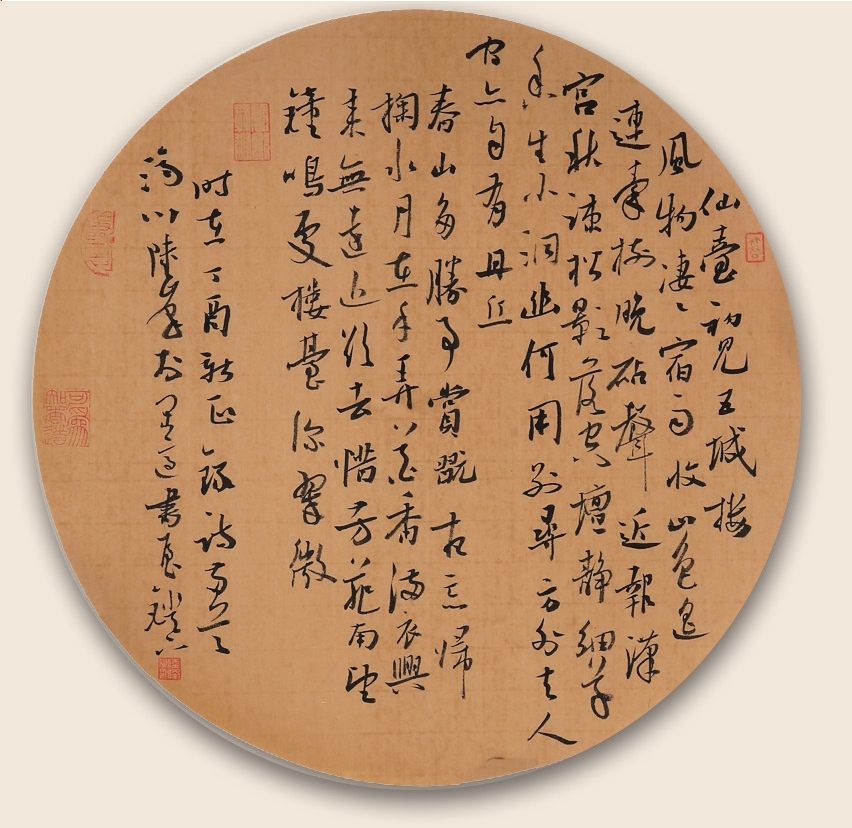 仙臺初見五城樓
風物淒淒宿雨收山色遙
連秦樹晚砧聲近報漢
宮秋疎松影落空壇靜細草
香生小洞幽何用別尋方外去人
间亦自有丹丘
春山多勝事賞翫夜忘歸
掬水月在手弄花香滿衣興
來無遠近欲去惜芳菲南望
鐘鳴處樓臺深翠微
时在丁酉新正錄詩兩首
川陸峯於墨書屋鐙下